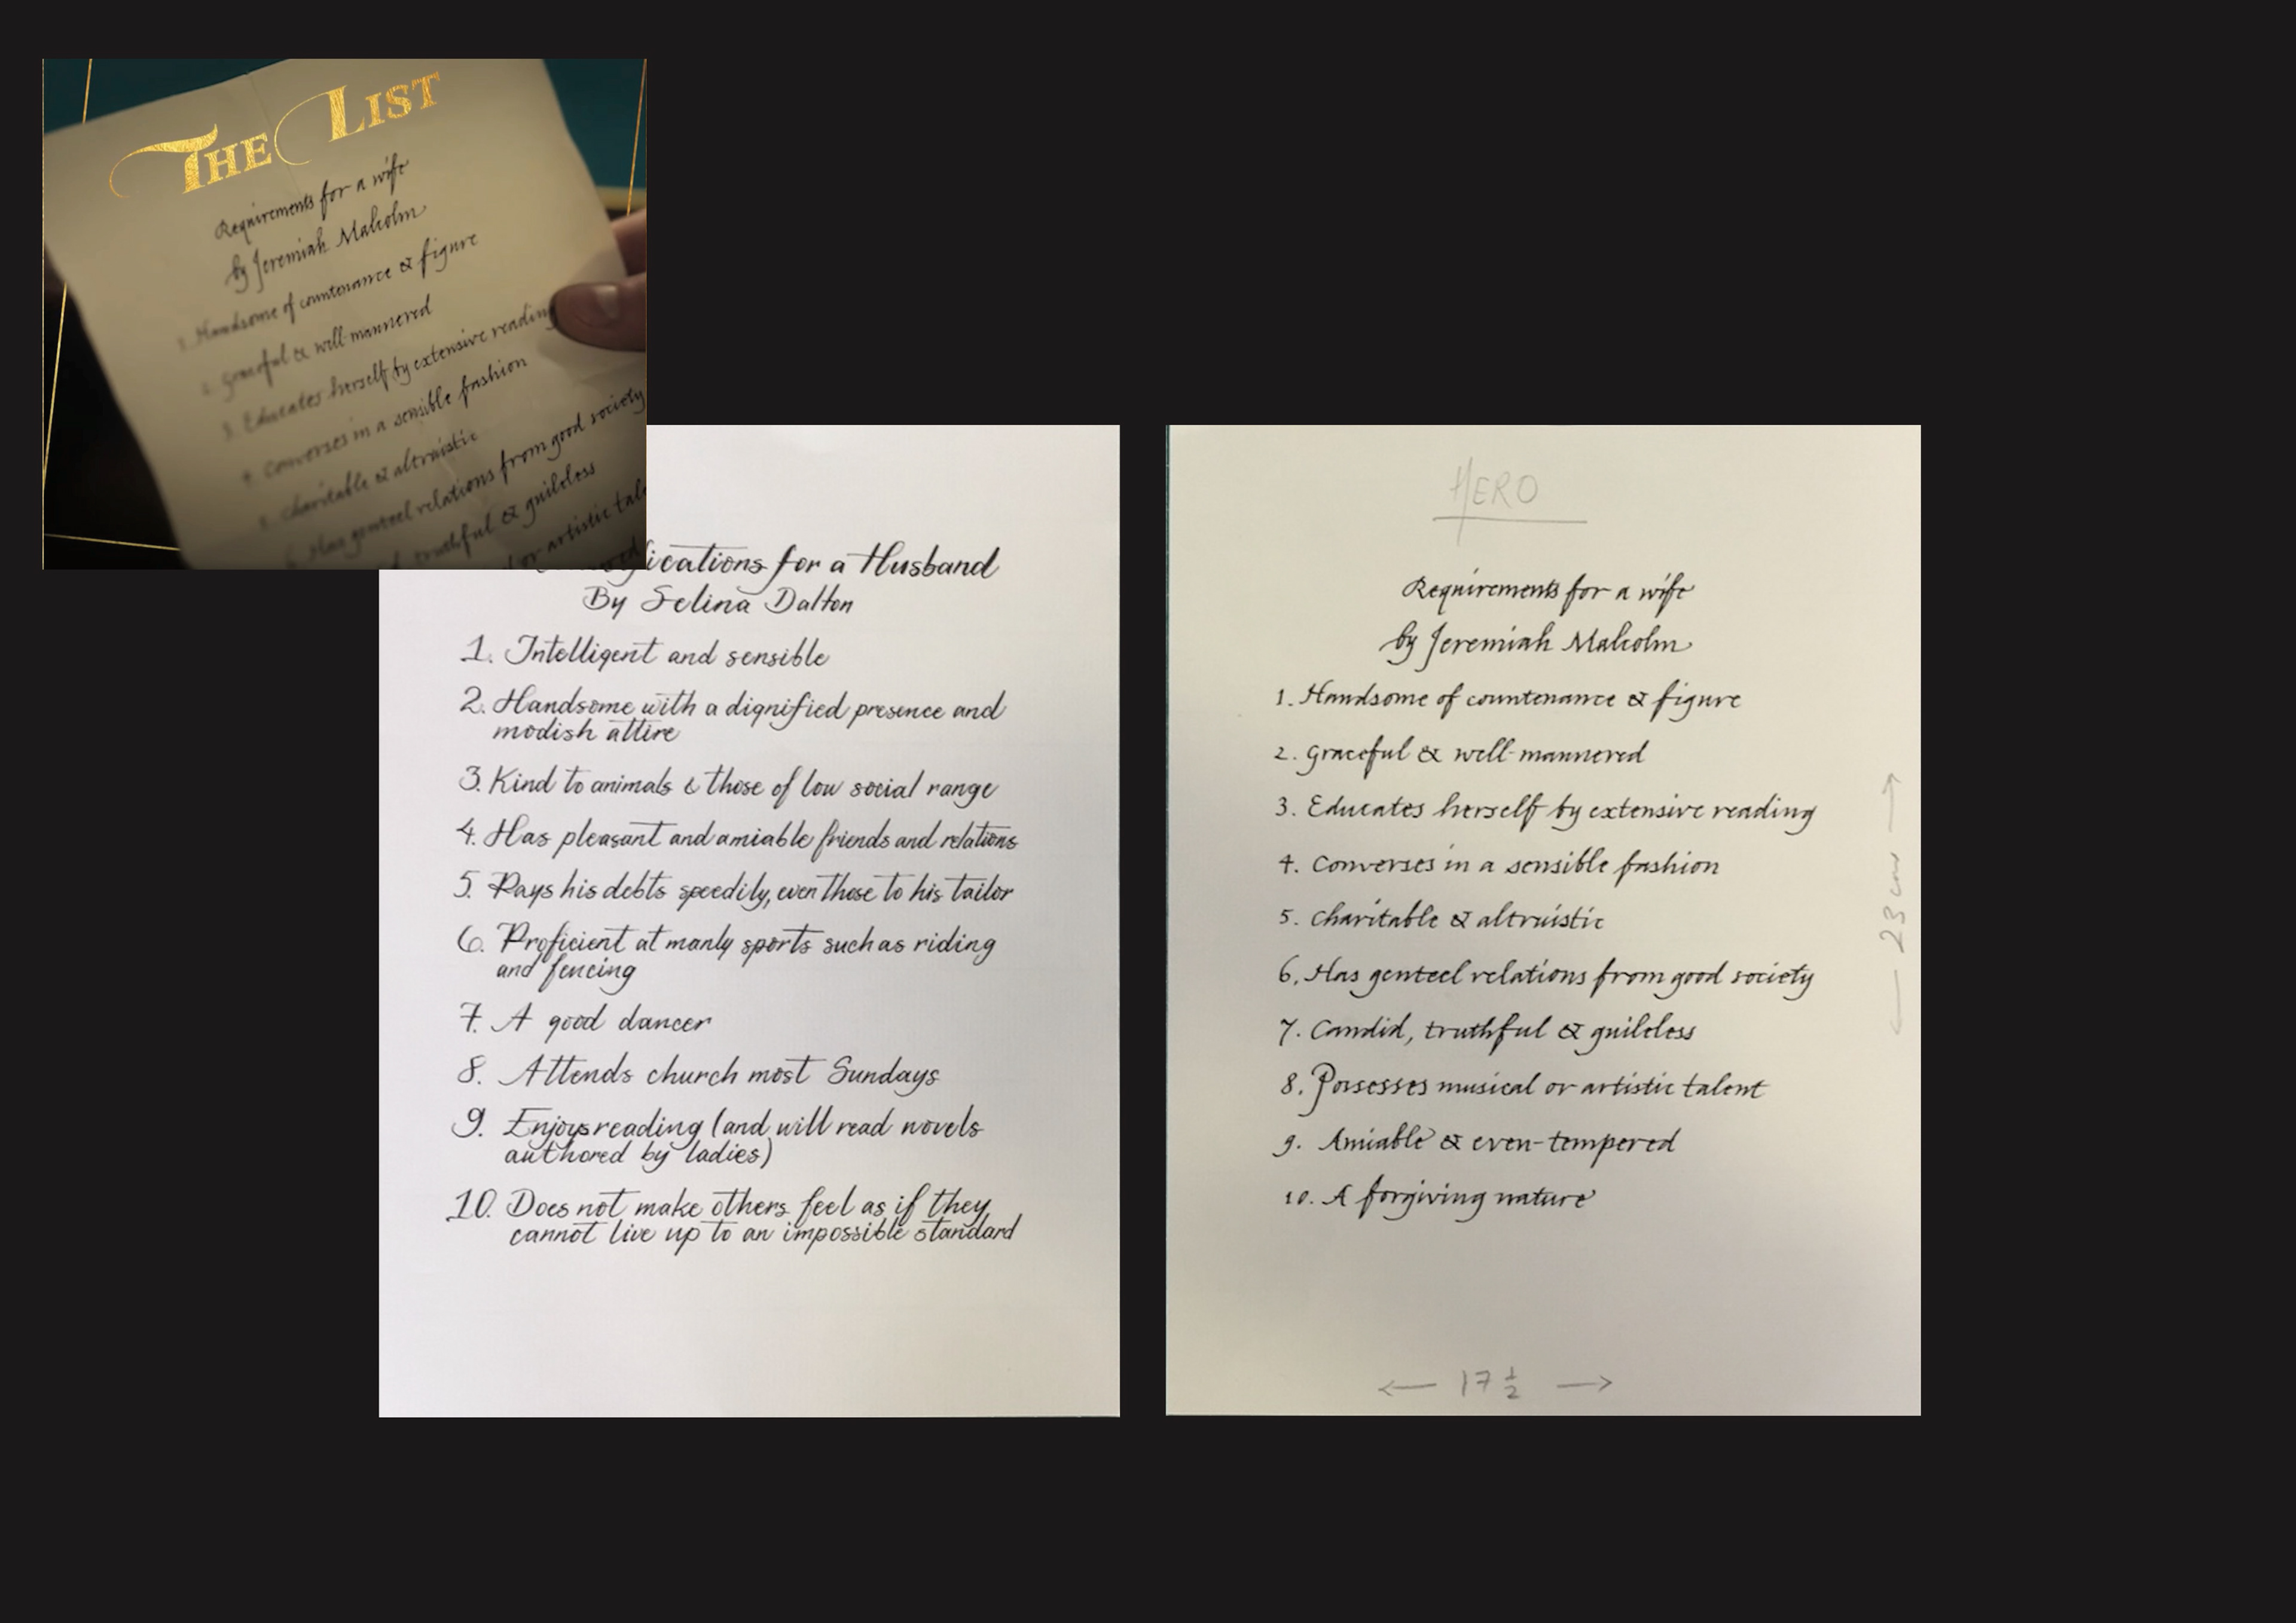 THE LIST
Requirements for a wife
by Jeremiah Malcolm
1. Handsome of countenance & figure
2. Graceful & well-mannered
3. Educates herself by extensive reading
4. Converses in a sensible fashion
5. Charitable & altruistic
6. Has genteel relations from good society
truthful & guileless
or artistic
for a Husband
By Selina Dalton
1. Intelligent and sensible
2. Handsome with a dignified presence and
modish attire
3. Kind to animals & those of low social range
4. Has pleasant and amiable friends and relations
5. Pays his debts speedily, even those to his tailor
6. Proficient at manly sports such as riding
and fencing
7. A good dancer
8. Attends church most Sundays
9. Enjoys reading (and will read novels
authored by ladies)
10. Does not make others feel as if they
cannot live up to an impossible standard
HERO
Requirements for a wife
by Jeremiah Malcolm
1. Handsome of countenance & figure
2. Graceful & well-mannered
3. Educates herself by extensive reading
4. Converses in a sensible fashion
5. Charitable & altruistic
6. Has genteel relations from good society
7. Candid, truthful & guileless
8. Possesses musical or artistic talent
9. Amiable & even-tempered
10. A forgiving nature
← 23 cm →
← 17 ½ →